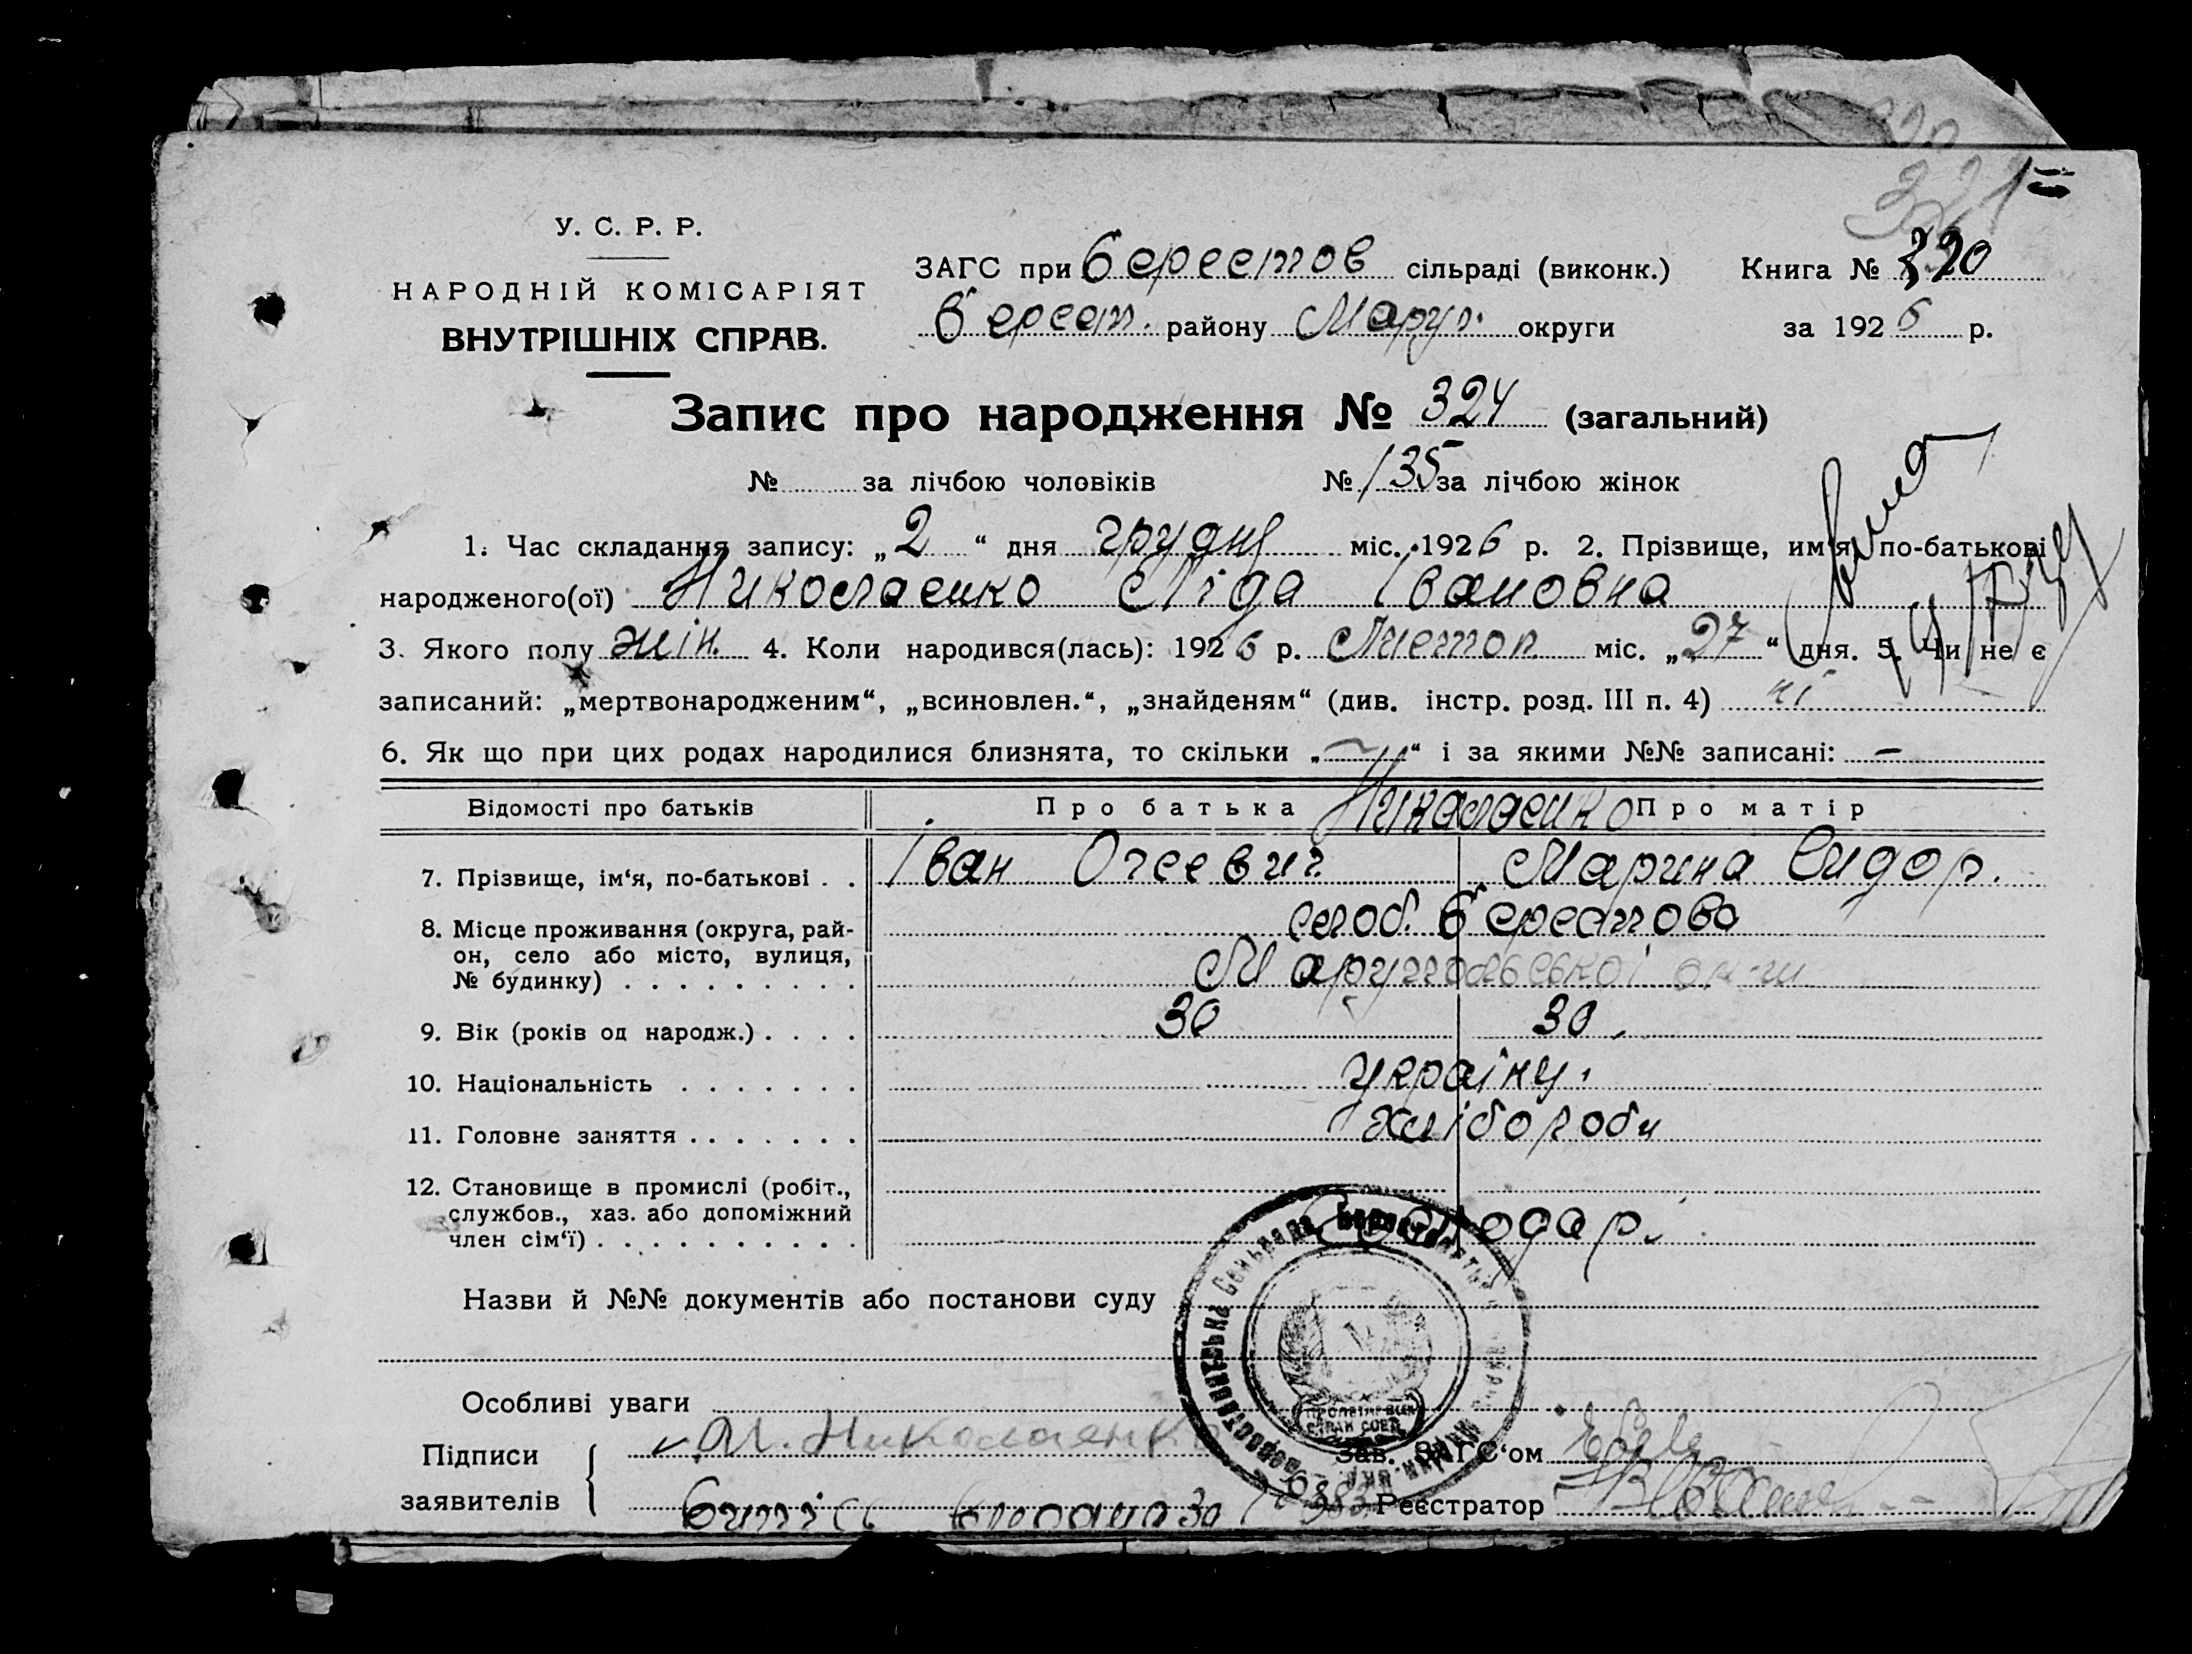 321=
У. С. Р. Р.
НАРОДНІЙ КОМІСАРІЯТ
ВНУТРІШНІХ СПРАВ.
ЗАГС при Берестов сільраді (виконк.) Книга № 320
Берест. району Маруп. округи за 1926 р.
Запис про народження № 324 (загальний)
№ за лічбою чоловіків № 135 за лічбою жінок
1. Час складання запису: „2“ дня грудня міс. 1926 р. 2. Прізвище, им'я, по-батькові
народженого(ої) Николаенко Ліда Івановна
3. Якого полу жін. 4. Коли народився(лась): 1926 р. Листоп. міс. „27“ дня. 5. Чи не є
записаний: „мертвонародженим“, „всиновлен.“, „знайденям“ (див. інстр. розд. III п. 4) ні
6. Як що при цих родах народилися близнята, то скільки „—“ і за якими №№ записані: —
Відомості про батьків Про батька Николаенко Про матір
7. Прізвище, ім'я, по-батькові . . Іван Марина Сидор.
8. Місце проживання (округа, рай- слоб. Берестова
он, село або місто, вулиця,
№ будинку) . . . . . . . . . Марупольської
9. Вік (років од народж.) . . . . 30 30.
10. Національність . . . . . . . україну.
11. Головне заняття . . . . . . . хлібороби
12. Становище в промислі (робіт.,
службов., хаз. або допоміжний
член сім'ї) . . . . . . . . . .
Назви й №№ документів або постанови суду
Особливі уваги
Підписи М. Николаенко Зав. ЗАГС'ом
заявителів Реєстратор